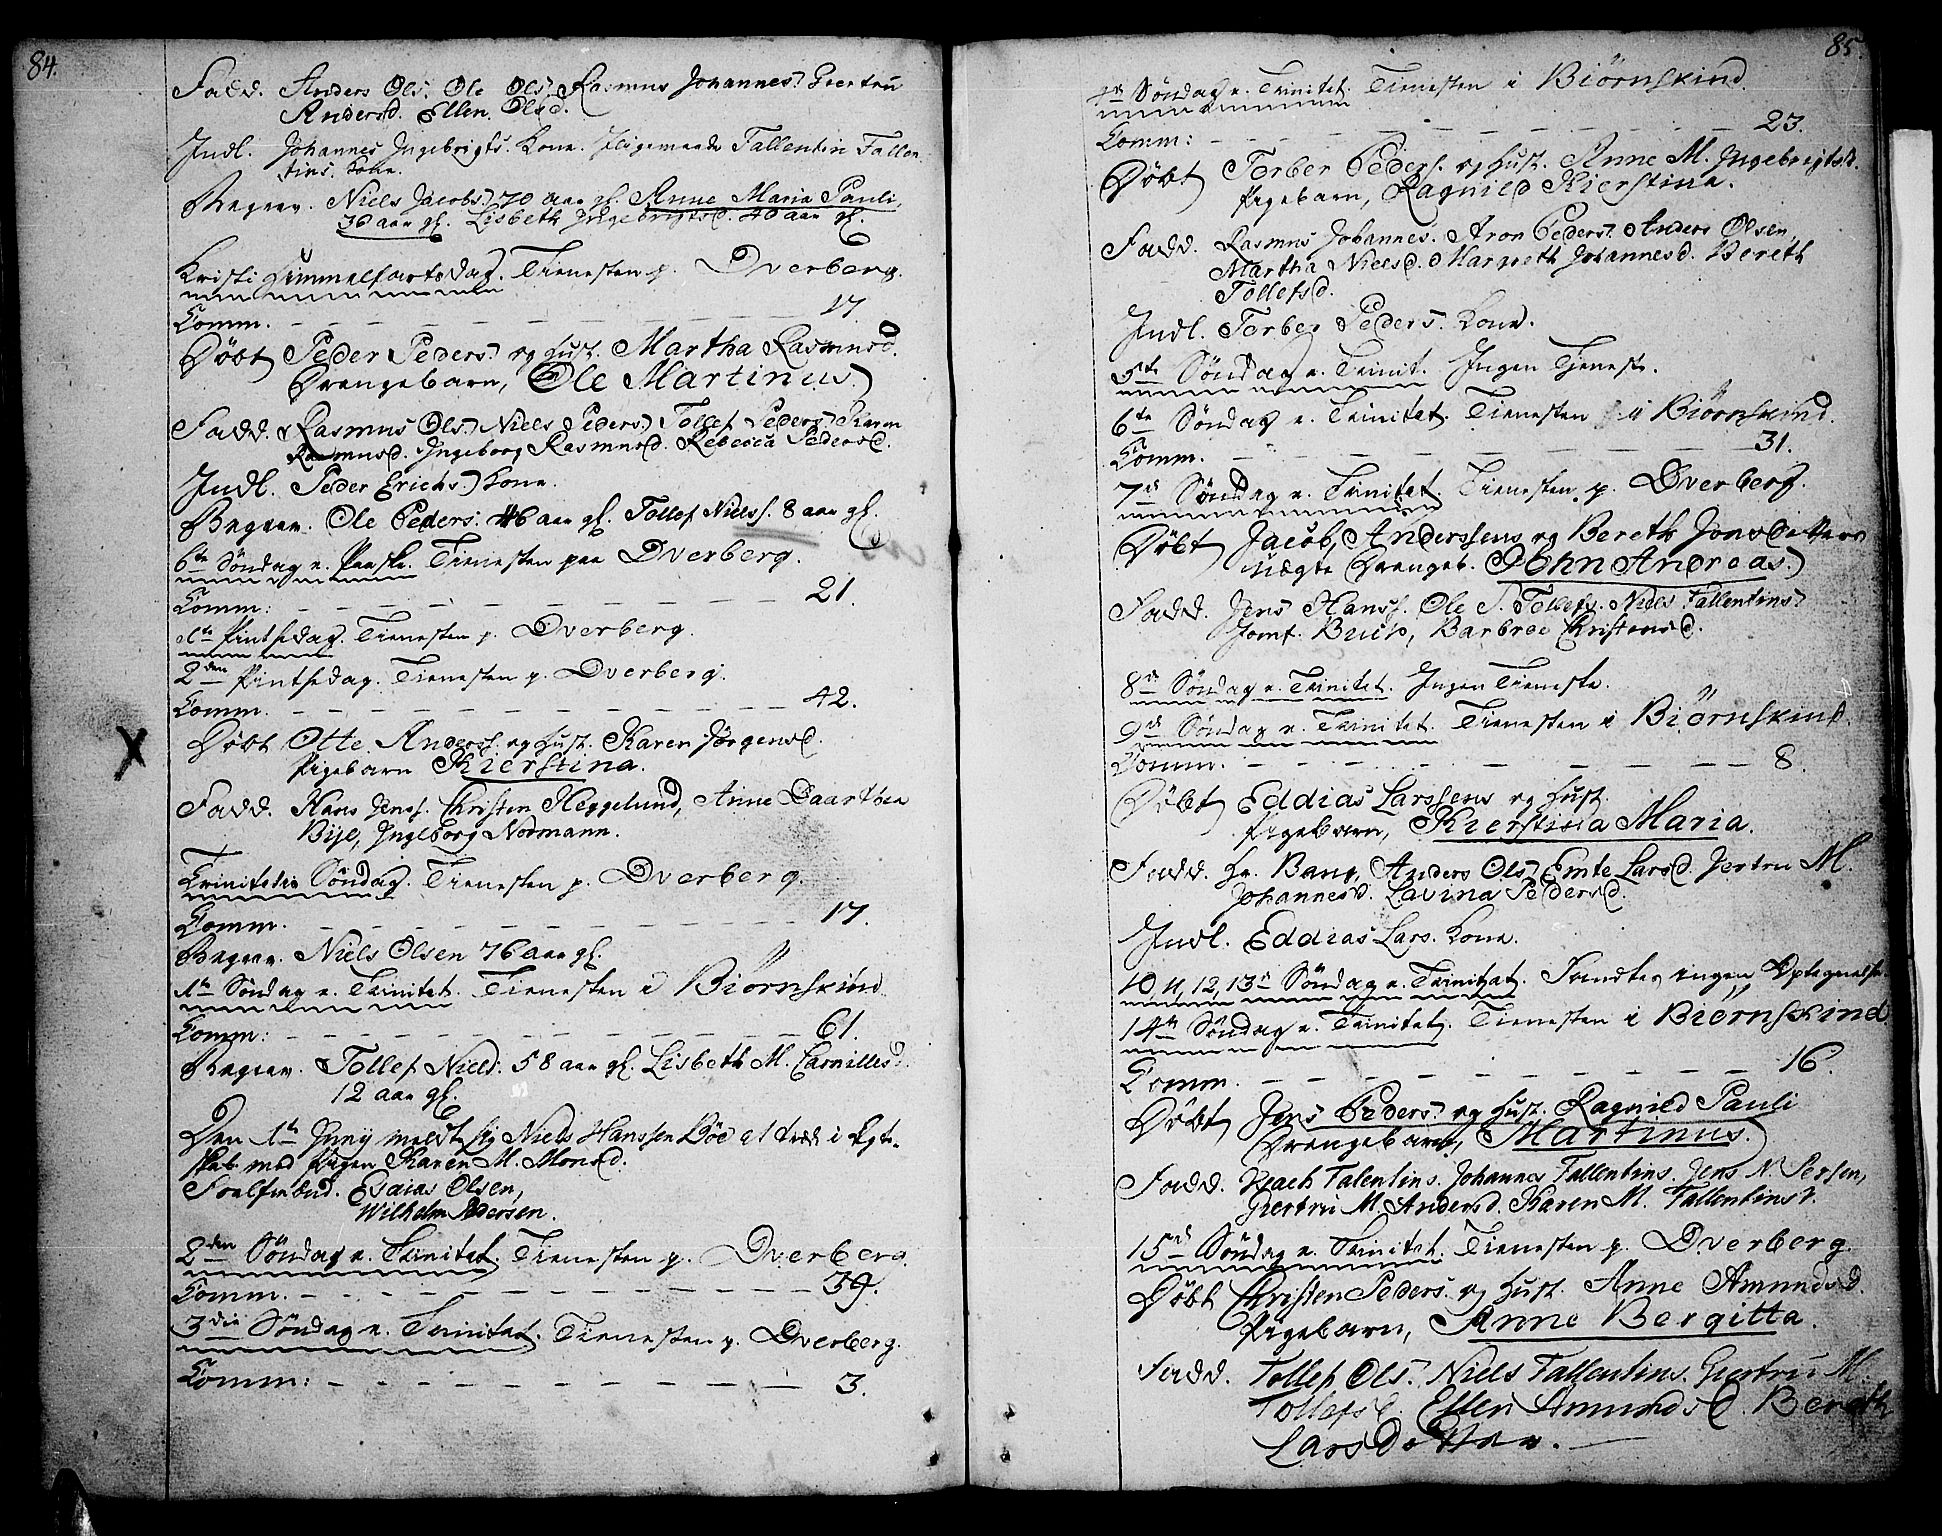 84.
Fadd. Anders Ols. Ole Ols. Rasmus Johannes. Geertru
Andersd. Ellen Olsd.
Indl. Johannes Ingebrigts. Kone. Fallentin Fallen
tins. Kone.
Begrav. Niels Jacobs. 70 aar gl. Anne Maria Pauli,
36 aar gl. Lisbeth Ingebrigtsd. 40 aar gl.
Kristi Himmelfartsdag. Tienesten p. Dverberg.
Comm. 17
Døbt Peder Peders. og Hust. Martha Rasmusd.
Drengebarn, Ole Martinus.
Fadd. Rasmus Ols. Niels Peders. Tollef Peders. Karen
Rasmusd. Ingeborg Rasmusd. Rebecca Pedersd.
Indl. Peder Erichs. Kone.
Begrav. Ole Peders. 46 aar gl. Tollef Niels. 8 aar gl.
6te Søndag e. Paaske. Tienesten paa Dverberg.
Comm: 21.
1te Pintsedag. Tienesten p. Dverberg.
2den Pintsedag. Tienesten p. Dverberg.
Comm. 42.
Døbt Otte Anders. og Hust. Karen Jørgensd.
Pigebarn Kierstina.
Fadd. Hans Jens. Christen Heggelund, Anne Daarthea
Bye, Ingeborg Normann.
Trinitatis Søndag. Tienesten p. Dverberg.
Comm. 17.
Begrav. Niels Olsen 76 aar gl.
1te Søndag e. Trinitat. Tienesten i Biørnskind
Comm: 61.
Begrav. Tollef Niels. 58 aar gl. Lisbeth M. Cornillesd.
12 aar gl.
Den 1te Juny meldt sig Niels Hanssen Bøe at træde i Egte-
skab med Pigen Karen M. Monsd.
Esaias Olsen,
Wilhelm Pedersen.
2den Søndag e. Trinitat. Tienesten p. Dverberg.
Comm. 39.
3die Søndag e. Trinitat. Tienesten p. Dverberg.
Comm: 3.
85.
4de Søndag e. Trinitet. Tienesten i Biørnskind.
Comm: 23.
Døbt Torber Peders. og Hust. Anne M. Ingebrigtsd.
Pigebarn, Ragnild Kierstina.
Fadd. Rasmus Johannes. Aron Peders. Anders Olsen,
Martha Nielsd. Margreth Johannesd. Bereth
Tollefsd.
Indl. Torber Peders. Kone.
5te Søndag e. Trinit. Ingen Tjeneste.
6te Søndag e. Trinitat. Tienesten i Biørnskind.
Comm. 31.
7de Søndag e. Trinitat. Tienesten p. Dverberg.
Døbt Jacob Anderssens og Bereth Jonsdatters
uægte Drengeb. John Andreas.
Fadd. Jens Hans. Ole T. Tollefs. Niels Fallentins.
Jomf. Buch, Barbroe Christensd.
8de Søndag e. Trinitet. Ingen Tieneste.
9de Søndag e. Trinitat. Tienesten i Biørnskind.
Comm. 8.
Døbt Eddias Larssens og Hust.
Pigebarn, Kierstina Maria.
Fadd. Hr. Bang, Anders Ols. Emte Larsd. Jertru M.
Johannesd. Lavina Pedersd.
Indl. Eddias Lars. Kone.
10, 11, 12, 13de Søndag e. Trinitat. Fandtes ingen Optegnelse.
14de Søndag e. Trinitat. Tienesten i Biørnskind
Comm. 16.
Døbt Jens Peders. og Hust. Ragnild Pauli
Drengebarn, Martinus.
Fadd. Zach Talentins. Johannes Fallentins. Jens N Persen,
Giertru M. Andersd. Karen M. Fallentinsd.
15de Søndag e. Trinitat. Tienesten p. Dverberg.
Døbt Christen Peders. og Hust. Anne Amundsd.
Pigebarn, Anne Bergitta.
Fadd. Tollef Ols. Niels Fallentins. Giertru M.
Tollefsd. Ellen Amundsd. Bereth
Larsdatter.